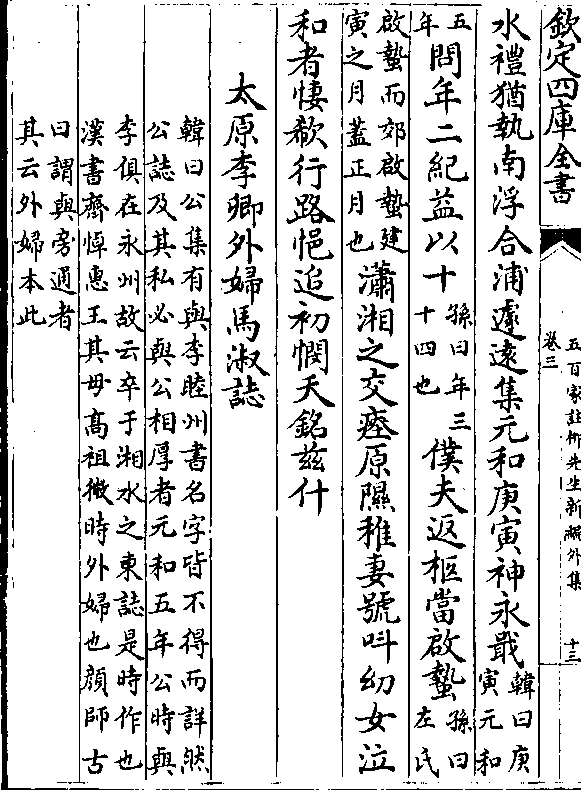 欽定四庫全書
五百家註柳先生新編外集
卷三
十三
水禮猶執南浮合浦遽遠集元和庚寅神永戢韓曰庚
寅元和
五
年問年二紀益以十孫曰年三
十四也僕夫返柩當啟蟄孫曰
左氏
啟蟄而郊啟蟄建
寅之月蓋正月也瀟湘之交瘞原隰稚妻號叫幼女泣
和者悽欷行路悒追初憫天銘茲什
太原李卿外婦馬淑誌
韓曰公集有與李睦州書名字皆不得而詳然
公誌及其私必與公相厚者元和五年公時與
李俱在永州故云卒于湘水之東誌是時作也
漢書齊悼惠王其母高祖微時外婦也顏師古
曰謂與旁通者
其云外婦本此